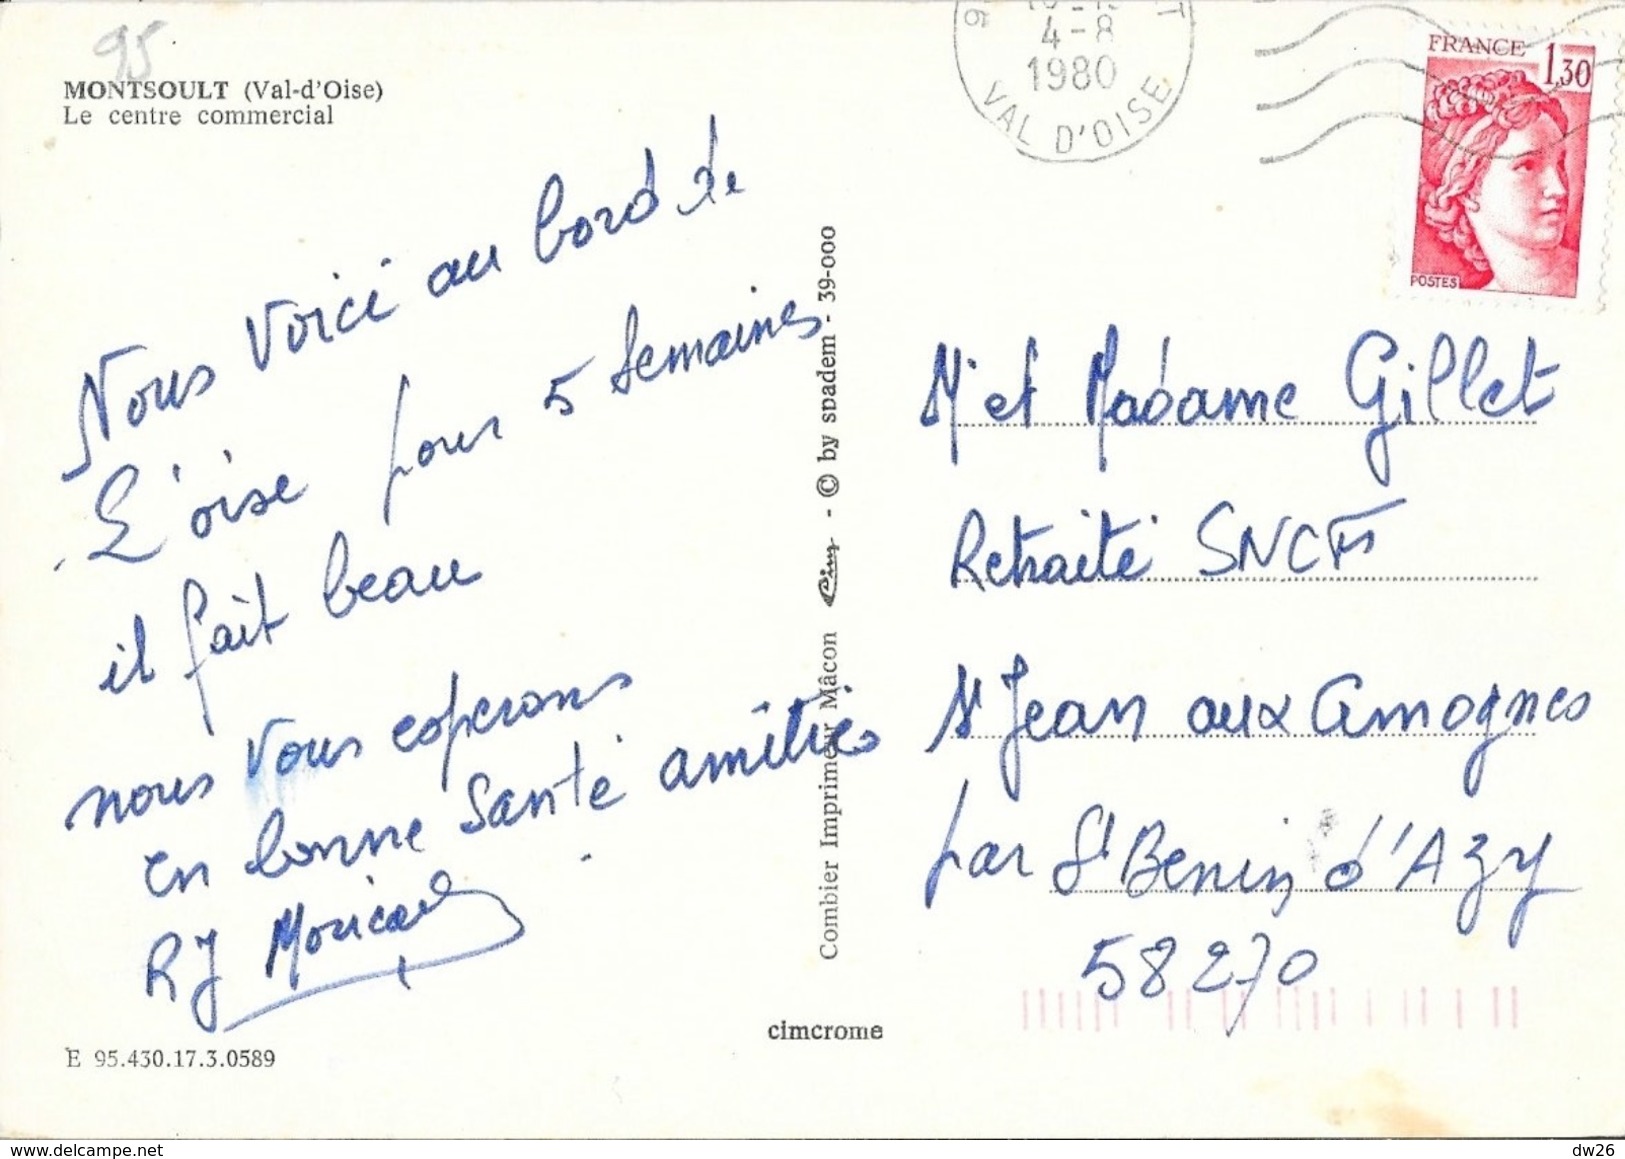 95
MONTSOULT (Val-d'Oise)
Le centre commercial
Nous voici au bord de
L'oise pour 5 semaines
il fait beau
nous vous esperons
en bonne santé amitiés
RJ Moricard
E 95.430.17.3.0589
Combier Imprimeur Mâcon Cim - © by spadem - 39-000
cimcrome
4-8
1980
VAL D'OISE
FRANCE 1,30
POSTES
M et Madame Gillet
Retraité SNCF
St Jean aux Amognes
par St Benin d'Azy
58270
dw26